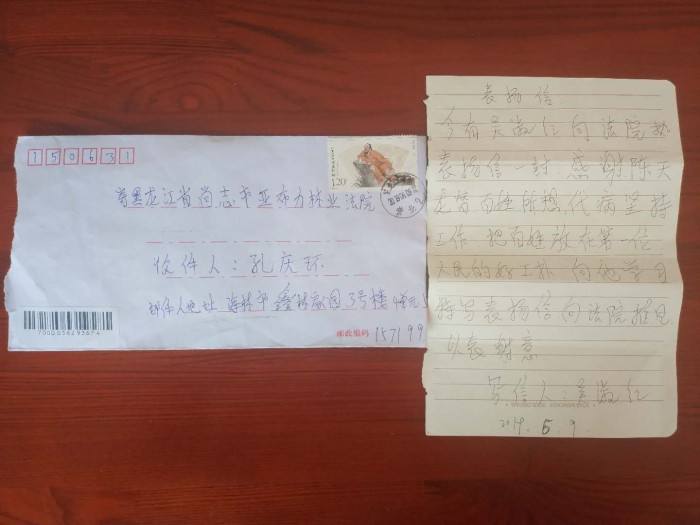 150631
1.20元
寄黑龙江省尚志市亚布力林业法院
收件人：孔庆环
邮件人地址 海林市鑫林家园3号楼
7000056293674
邮政编码
157199
表扬信
今有吴淑红向法院
表扬信一封 感谢陈天
百姓所想代病坚持
工作 把百姓放在第一位
人民的好工 向他学习
特写表扬信向法院
以表谢意
写信人：吴淑红
2019. 5. 9